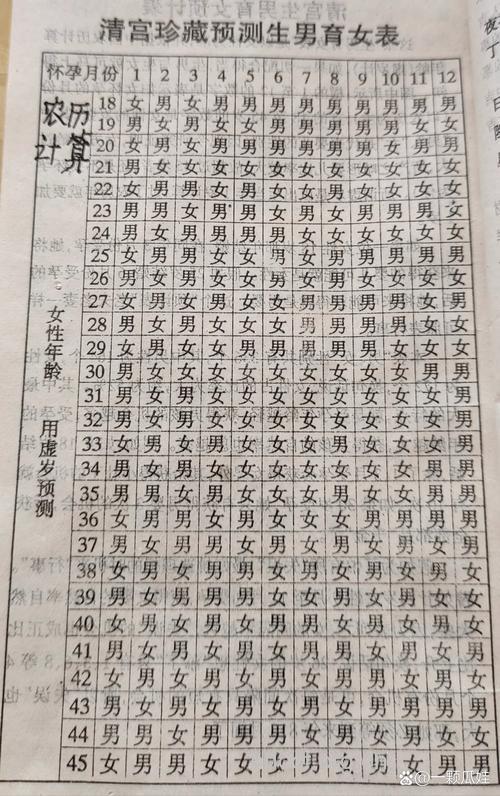 清宫珍藏预测生男育女表
怀孕月份 1 2 3 4 5 6 7 8 9 10 11 12
农历
计算
女性年龄 用虚岁预测
18 女 男 女 男 男 男 男 男 男 男 男 男
19 男 女 男 女 女 男 男 男 男 男 女 女
20 女 男 女 男 男 男 男 男 男 女 男 男
21 男 女 女 女 女 女 女 女 女 女 女 女
22 女 男 男 女 男 女 女 男 女 女 女 女
23 男 男 女 男 男 女 男 女 男 男 男 女
24 男 女 男 男 男 男 女 女 女 女 女 女
25 女 男 男 女 女 男 女 男 男 男 男 男
26 女 男 女 男 女 男 女 男 女 女 女 女
27 女 男 女 男 女 女 男 男 男 男 女 男
28 男 女 男 女 女 女 男 男 男 男 女 女
29 男 女 女 女 男 男 男 男 男 女 女 女
30 男 女 女 女 女 女 女 女 女 女 男 男
31 男 女 男 女 女 女 女 女 女 女 女 男
32 男 女 男 女 女 女 女 女 女 女 女 男
33 女 男 女 男 女 女 女 男 女 女 女 男
34 男 女 男 女 女 女 女 女 女 女 男 男
35 男 男 女 男 女 女 女 男 女 女 男 男
36 女 男 男 女 男 女 女 女 男 男 男 男
37 男 女 男 男 女 男 女 男 女 男 女 男
38 女 男 女 男 男 女 男 女 男 女 男 女
39 男 女 男 男 男 女 女 男 女 男 女 女
40 女 男 女 男 女 男 男 女 男 女 男 女
41 男 女 男 女 男 女 男 男 女 男 女 男
42 女 男 女 男 女 男 女 男 男 女 男 女
43 男 女 男 女 男 女 男 女 男 男 男 男
44 男 男 女 男 男 男 女 男 女 男 女 女
45 女 男 男 女 女 女 男 女 男 女 男 男
Bai度 @一颗瓜娃